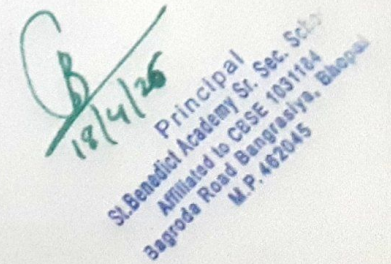 18/4/26
Principal
St.Benedict Academy Sr. Sec.
Affiliated to CBSE 1031184
Bagroda Road Bangrasiya, Bhopal
M.P. 462045